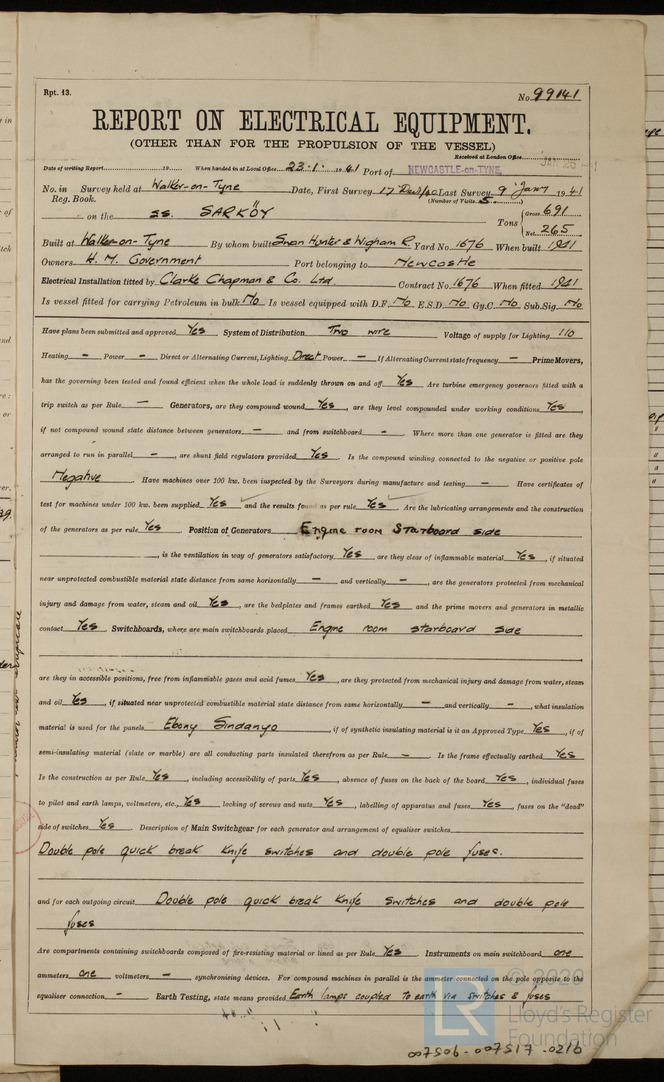 Rpt. 13.
No. 99141
REPORT ON ELECTRICAL EQUIPMENT.
(OTHER THAN FOR THE PROPULSION OF THE VESSEL)
Received at London Office
Date of writing Report 19 When handed in at Local Office 23.1. 1941 Port of NEWCASTLE-ON-TYNE.
No. in Survey held at Walker-on-Tyne Date, First Survey 17 Dec/40 Last Survey 9 Jany 1941
Reg. Book. (Number of Visits 5.)
on the ss. SARKÖY Tons { Gross 691
Net 265
Built at Walker-on-Tyne By whom built Swan Hunter & Wigham R. Yard No. 1676 When built 1941
Owners H. M. Government Port belonging to Newcastle
Electrical Installation fitted by Clarke Chapman & Co. Ltd. Contract No. 1676 When fitted 1941
Is vessel fitted for carrying Petroleum in bulk No Is vessel equipped with D.F. No E.S.D. No Gy.C. No Sub.Sig. No
Have plans been submitted and approved Yes System of Distribution Two wire Voltage of supply for Lighting 110
Heating - Power - Direct or Alternating Current, Lighting Direct Power - If Alternating Current state frequency - Prime Movers,
has the governing been tested and found efficient when the whole load is suddenly thrown on and off Yes Are turbine emergency governors fitted with a
trip switch as per Rule - Generators, are they compound wound Yes, are they level compounded under working conditions Yes,
if not compound wound state distance between generators - and from switchboard - Where more than one generator is fitted are they
arranged to run in parallel -, are shunt field regulators provided Yes. Is the compound winding connected to the negative or positive pole
Negative. Have machines over 100 kw. been inspected by the Surveyors during manufacture and testing - Have certificates of
test for machines under 100 kw. been supplied Yes and the results found as per rule Yes. Are the lubricating arrangements and the construction
of the generators as per rule Yes Position of Generators Engine room Starboard side
, is the ventilation in way of generators satisfactory Yes are they clear of inflammable material Yes, if situated
near unprotected combustible material state distance from same horizontally - and vertically -, are the generators protected from mechanical
injury and damage from water, steam and oil Yes, are the bedplates and frames earthed Yes and the prime movers and generators in metallic
contact Yes Switchboards, where are main switchboards placed Engine room starboard side
are they in accessible positions, free from inflammable gases and acid fumes Yes, are they protected from mechanical injury and damage from water, steam
and oil Yes, if situated near unprotected combustible material state distance from same horizontally - and vertically -, what insulation
material is used for the panels Ebony Sindanyo, if of synthetic insulating material is it an Approved Type Yes, if of
semi-insulating material (slate or marble) are all conducting parts insulated therefrom as per Rule -. Is the frame effectually earthed Yes
Is the construction as per Rule Yes, including accessibility of parts Yes, absence of fuses on the back of the board Yes, individual fuses
to pilot and earth lamps, voltmeters, etc., Yes locking of screws and nuts Yes, labelling of apparatus and fuses Yes, fuses on the "dead"
side of switches Yes. Description of Main Switchgear for each generator and arrangement of equaliser switches
Double pole quick break Knife switches and double pole fuses.
and for each outgoing circuit Double pole quick break Knife switches and double pole
fuses
Are compartments containing switchboards composed of fire-resisting material or lined as per Rule Yes. Instruments on main switchboard one
ammeters one voltmeters - synchronising devices. For compound machines in parallel is the ammeter connected on the pole opposite to the
equaliser connection -. Earth Testing, state means provided Earth lamps coupled to earth via switches & fuses
LR © 2020
Lloyd's Register
Foundation
007506-007517-0216